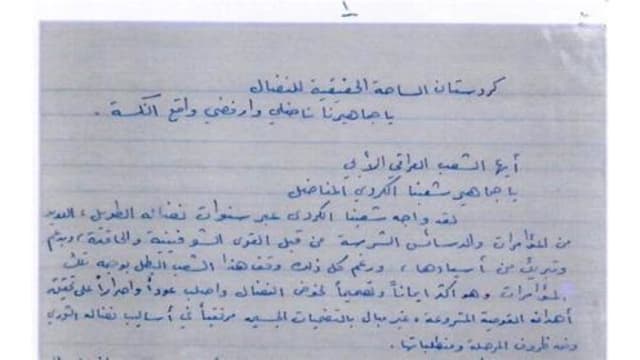 ١
كردستان الساحة الحقيقية للنضال
يا جماهيرنا ناضلي وارفضي واقع النكسة .
أيها الشعب العراقي الأبي
يا جماهير شعبنا الكردي المناضل
لقد واجه شعبنا الكردي عبر سنوات نضاله الطويل ، العديد
من المؤامرات والدسائس الشرسة من قبل القوى الشوفينية والحاقدة ، وبدعم
من أسيادها ، ورغم كل ذلك وقف هذا الشعب البطل بوجه تلك
المؤامرات وهو أكثر ايماناً وتصميماً لخوض النضال واصلب عوداً واصراراً على تحقيق
أهدافه القومية المشروعة ، غير مبال بالتضحيات الجسيمه مرتقياً في أساليب نضاله الثوري
وفق ظروف المرحلة ومتطلباتها .